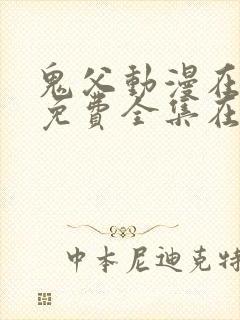 鬼父動漫在
免費全集在
中本尼迪克特